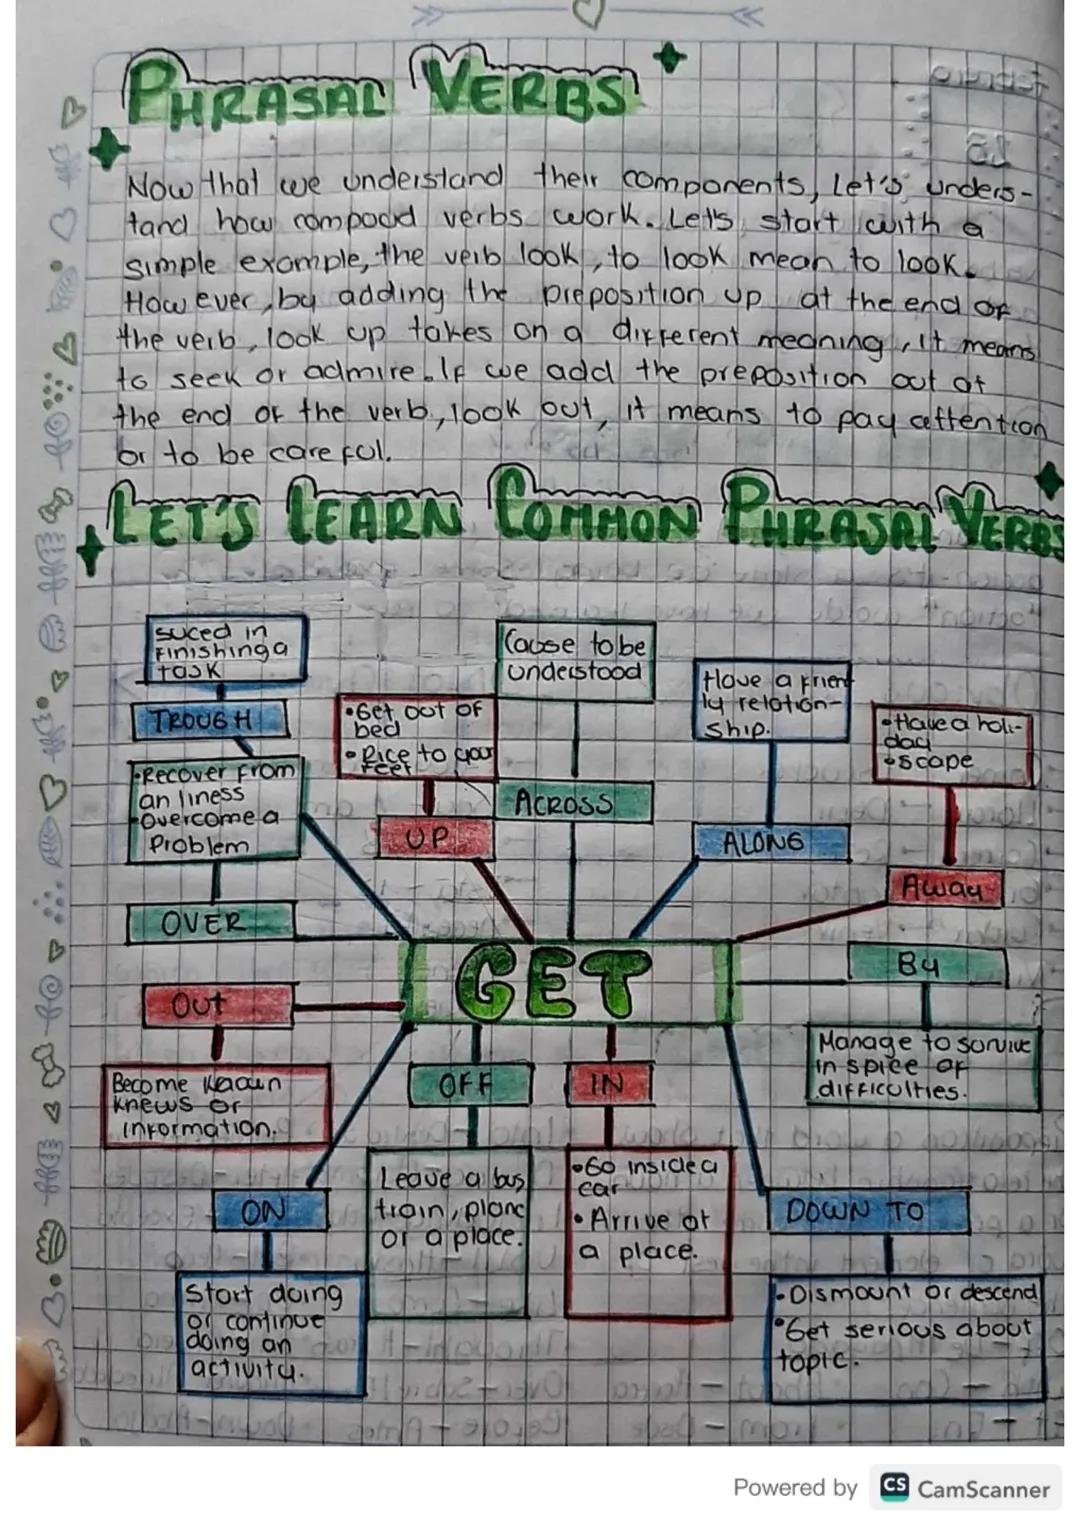 PHRASAL VERBS
Now that we understand their components, Let's unders-
tand how compood verbs work. Let's start with a
simple example, the verb look, to look mean to look.
However, by adding the preposition up at the end of
the verb, look up takes on a different meaning, it means
to seek or admire. If we add the preposition out at
the end of the verb, look out, it means to pay attention
or to be careful.
LET'S LEARN COMMON PHRASAL VERBS
suced in
finishing a
task
TROUGH
Cause to be
understood
Have a frien
ly relation-
ship.
•Get out of
bed
•Rice to your
feet
•Have a holi-
day
•scape
•Recover from
an liness
•Overcome a
Problem
ACROSS
UP
ALONG
Away
OVER
GET
By
Out
Manage to survive
in spice of
difficulties.
Become Known
Knews or
information.
OFF
IN
ON
Leave a bus,
train, plane
or a place.
•Go inside a
car
•Arrive at
a place.
DOWN TO
Start doing
or continue
doing an
activity.
•Dismount or descend
•Get serious about
topic.
Powered by CS CamScanner